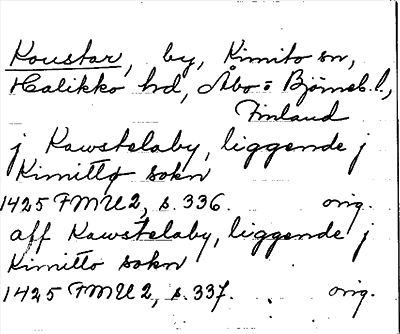 Koustar, by, Kimito sn,
Halikko hd, Åbo o Björneb. l.,
Finland
j Kawstelaby, liggende j
Kimitto sokn
1425 FMU 2, s. 336. orig.
aff Kawstelaby, liggende j
Kimitto sokn
1425 FMU 2, s. 337. orig.